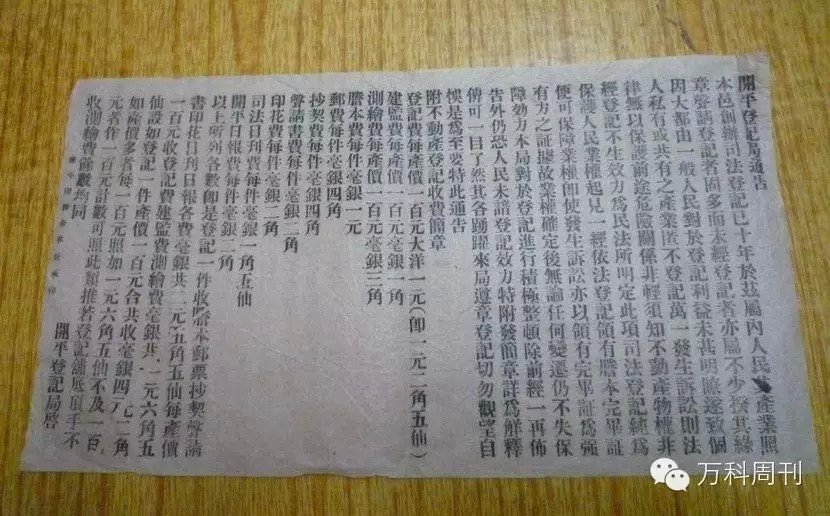 開平登記局通告
本邑創辦司法登記已十年於茲屬內人民產業照
章聲請登記者固多而未經登記者亦屬不少揆其緣
因大都由一般人民對於登記利益未甚明瞭遂致個
人私有或共有之產業匿不登記萬一發生訴訟則法
律無以保護前途危險關係非輕須知不動產物權非
經登記不生效力為民法所明定此項司法登記純為
保護人民業權起見一經依法登記領有謄本完畢証
便可保障業權即使發生訴訟亦以領有完畢証為強
有力之証據故業權確定後無論任何變遷仍不失保
障効力本局對於登記進行積極整頓除前經一再佈
告外仍恐人民未諳登記效力特附發簡章詳為解釋
俾可一目了然其各踴躍來局遵章登記切勿觀望自
悞是為至要特此通告
附不動產登記收費簡章
登記費每產價一百元大洋一元(即一元二角五仙)
建監費每產價一百元毫銀一角
測繪費每產價一百元毫銀三角
謄本費每件毫銀一元
郵費每件毫銀四角
抄契費每件毫銀四角
聲請書費每件毫銀二角
印花費每件毫銀二角
司法日刊費每件毫銀一角五仙
開平日報費每件毫銀二角
以上所列各數即是登記一件收謄本郵票抄契聲請
書印花日刊日報各費毫銀共二元五角五仙每產價
一百元收登記費建監費測繪費毫銀共一元六角五
仙設如登記一件產價一百元合共收毫銀四元二角
如產價多者每一百元照加一元六角五仙不及一百
元者作一百元計數可照此類推若登記舖底頂手不
收測繪費餘數均同
開平登記局啓
万科周刊